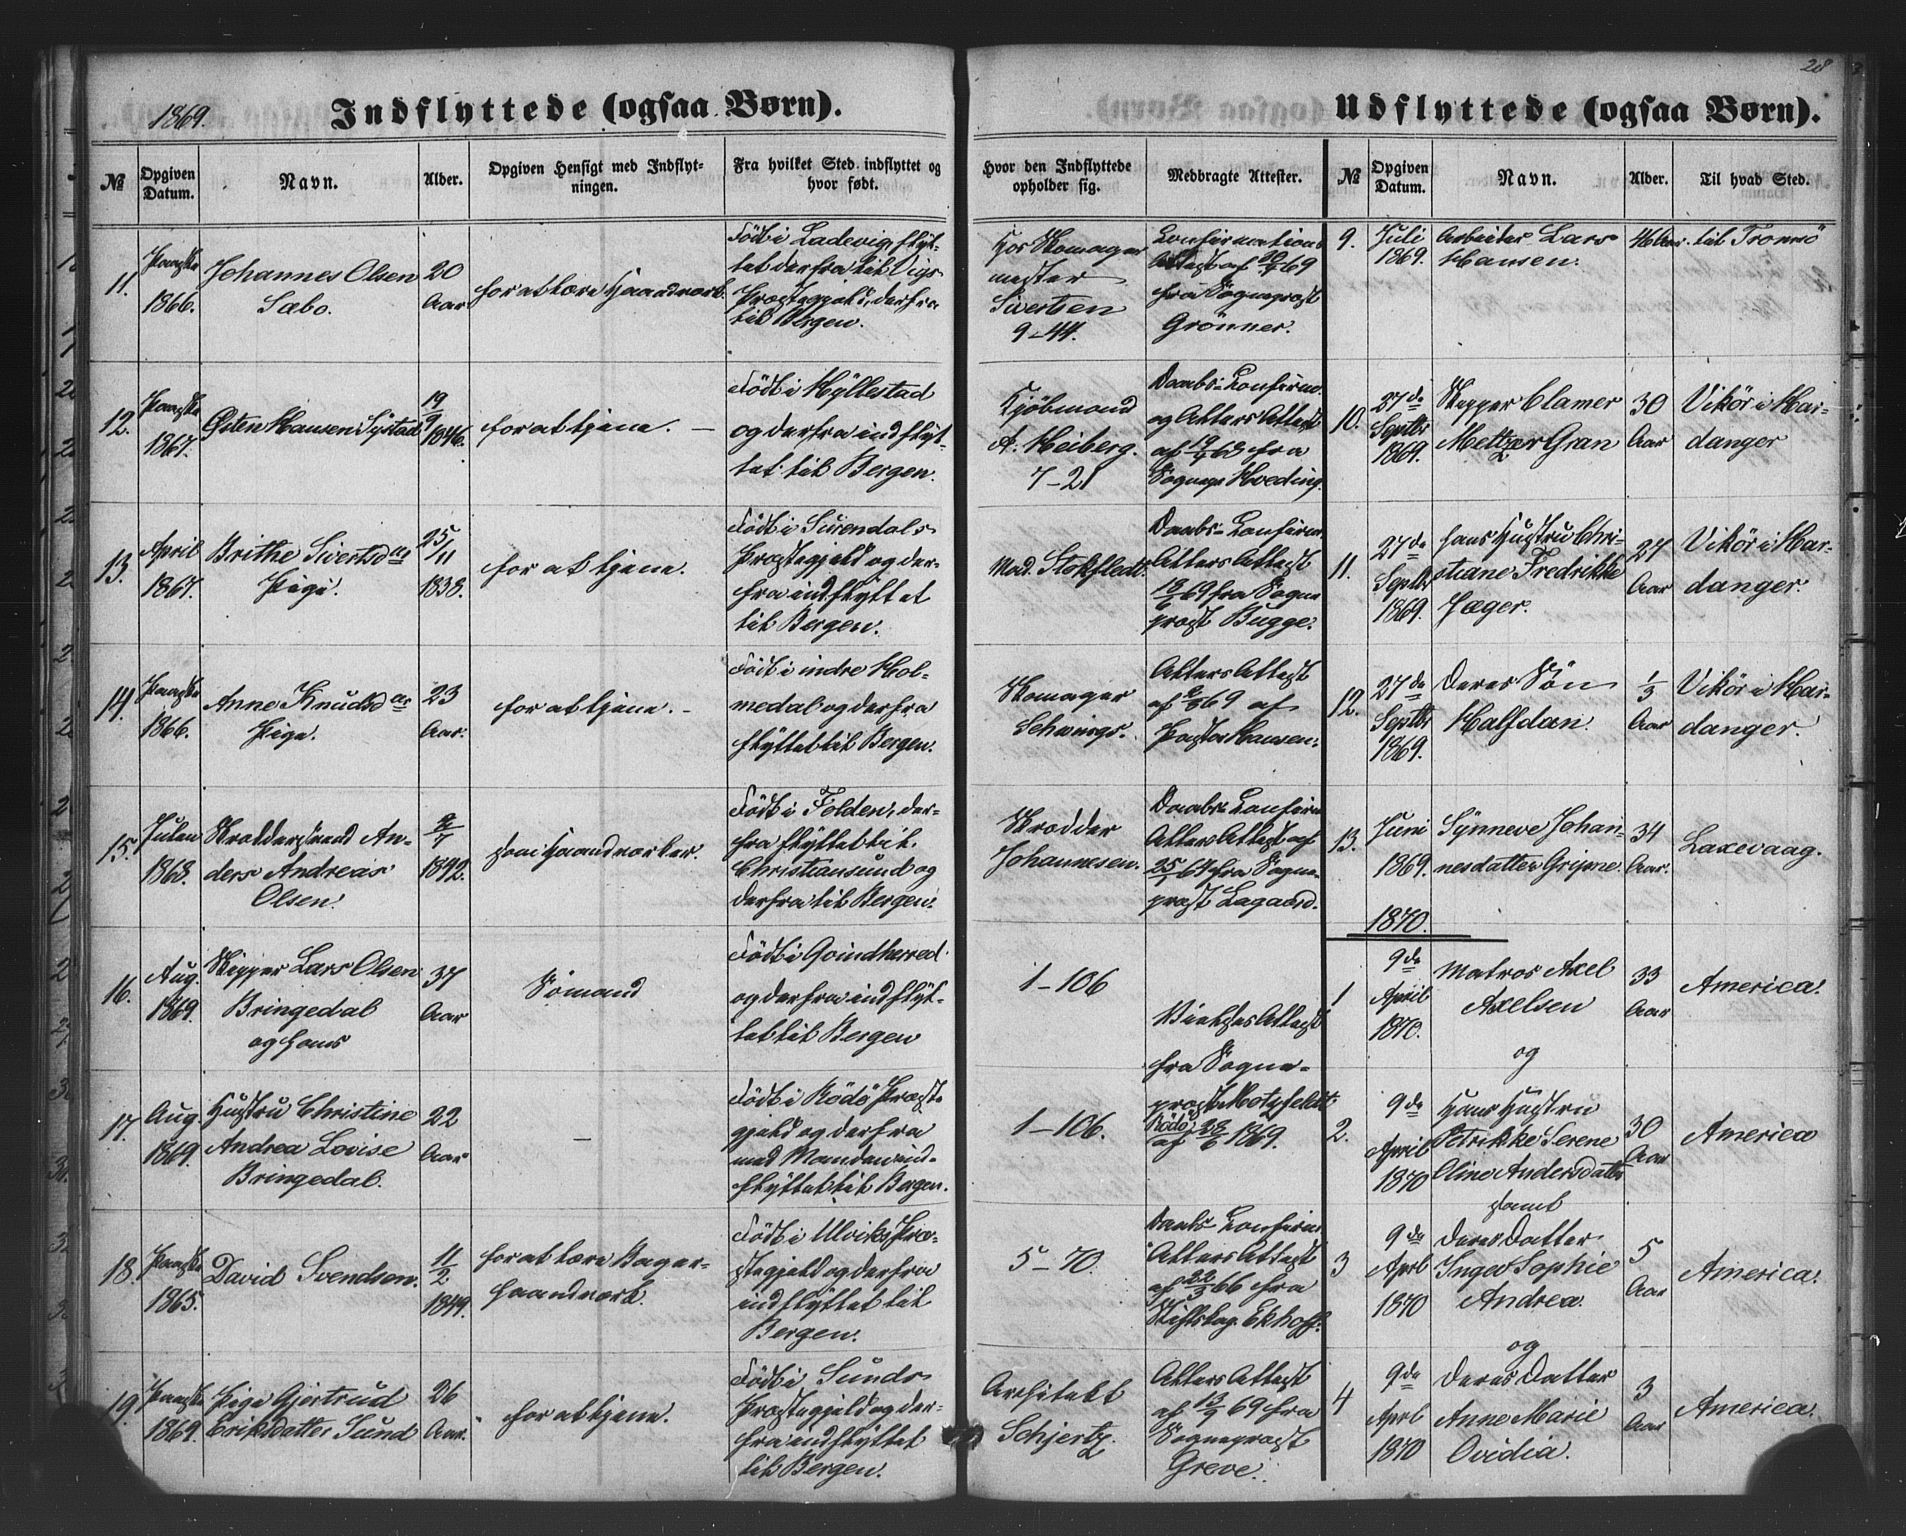 1869.
Indflyttede (ogsaa Børn).
№
Opgiven Datum.
Navn.
Alder.
Opgiven Hensigt med Indflyt-
ningen.
Fra hvilket Sted indflyttet og
hvor født.
11.
Paaske
1866.
Johannes Olsen
Sæbo.
20
Aar
for at lære Haandværk.
Født i Ladevig, flyt-
tet derfra til Vigs
Præstegjeld, derfra
til Bergen.
12.
Paaske
1867.
Østen Hansen Systad
19/9
1846.
for at tjene. —
Født i Hyllestad
og derfra indflyt-
tet til Bergen.
13.
April
1867.
Brithe Sivertsd
Pige.
25/11
1838.
for at tjene.
Født i Surendals
Præstegjeld og der-
fra indflyttet
til Bergen.
14.
Paaske
1866.
Anne Knudsd
Pige.
23
Aar.
for at tjene. -
Født i indre Hol-
medal og derfra
flyttet til Bergen.
15.
Julen
1868.
Skræddersvend An-
ders Andreas
Olsen.
1842.
som Haandværker.
Født i Folden, der-
fra flyttet til
Christiansund og
derfra til Bergen.
16.
Aug.
1869.
Skipper Lars Olsen
Bringedal
og hans
37
Aar
Sømand
Født i Qvindherred
og derfra indflyt-
tet til Bergen
17.
Aug.
1869.
Hustru Christine
Andrea Lovise
Bringedal.
22
Aar
—
Født i Rødø Præste
gjeld og derfra
med Manden ind-
flyttet til Bergen.
18.
Paaske
1865.
David Svendsen.
11/2
1849.
for at lære Bager-
haandværk.
Født i Ulviks Præ-
stegjeld og derfra
indflyttet til
Bergen.
19.
Paaske
1869.
Pige Gjertrud
Eriksdatter Sund
26
Aar.
for at tjene.
Født i Sunds
Præstegjeld og der-
fra indflyttet
til Bergen.
28
Udflyttede (ogsaa Børn).
Hvor den Indflyttede
opholder sig.
Medbragte Attester.
№
Opgiven Datum.
Navn.
Alder.
Til hvad Sted.
Hos Skomager
mester
Sivertsen
9-44.
Confirmations
Attest af 69
fra Sogneprest
Grönner.
9.
Juli
1869.
Arbeider Lars
Hansen.
til Tromsö
Kjöbmand
A. Heiberg.
7-21
Daabs- Confirm.
og Alters Attest
af fra
Sognepr Hveding.
10.
27de
Septbr
1869.
Skipper Clamer
Meltzer Gran
30
Aar
Vikör i Har-
danger
Mad. Stokfledt.
Daabs- Confirm.
Alters Attest
18/6 69 fra Sogne
prest Bugge.
11.
27de
Septbr
1869.
hans Hustru Chri-
stiane Fredrikke
Jæger.
27
Aar
Vikör i Har-
danger.
Skomager
Alters Attest
af 69 af
Pastor Hansen.
12.
27de
Septbr
1869.
Deres Søn
Halfdan.
1/3
Aar
Vikör i Har-
danger.
Skrædder
Johannesen.
Daabs- Confirm
Alters Attest af
fra Sogne-
prest Lagaard.
13.
Juni
1869.
Synneve Johan-
nesdatter Gripne.
34
Aar.
Laxevaag.
1870.
1-106
Vielses Attest
fra Sogne-
prest Motzfeldt
Rödö
af 28/6 1869.
1
9de
April
1870.
Matros Axel
Axelsen
og
33
Aar
America.
1-106.
2.
9de
April
1870
Hans Hustru
Petrikke Serene
Oline Andersdatter
samt
30
Aar
America
5-70.
Daabs- Confirm.
Alters Attest
af 22/3 66 fra
Stiftskap. Ekhoff.
3
9de
Aprl
1870
deres Datter
Inger Sophie
Andrea.
og
5
Aar
America.
Architekt
Schjertz.
Alters Attest
af 13/9 69 fra
Sogneprest
Greve.
4
9de
Aprl
1870
deres Datter
Anne Marie
Ovidia.
3
Aar
America.